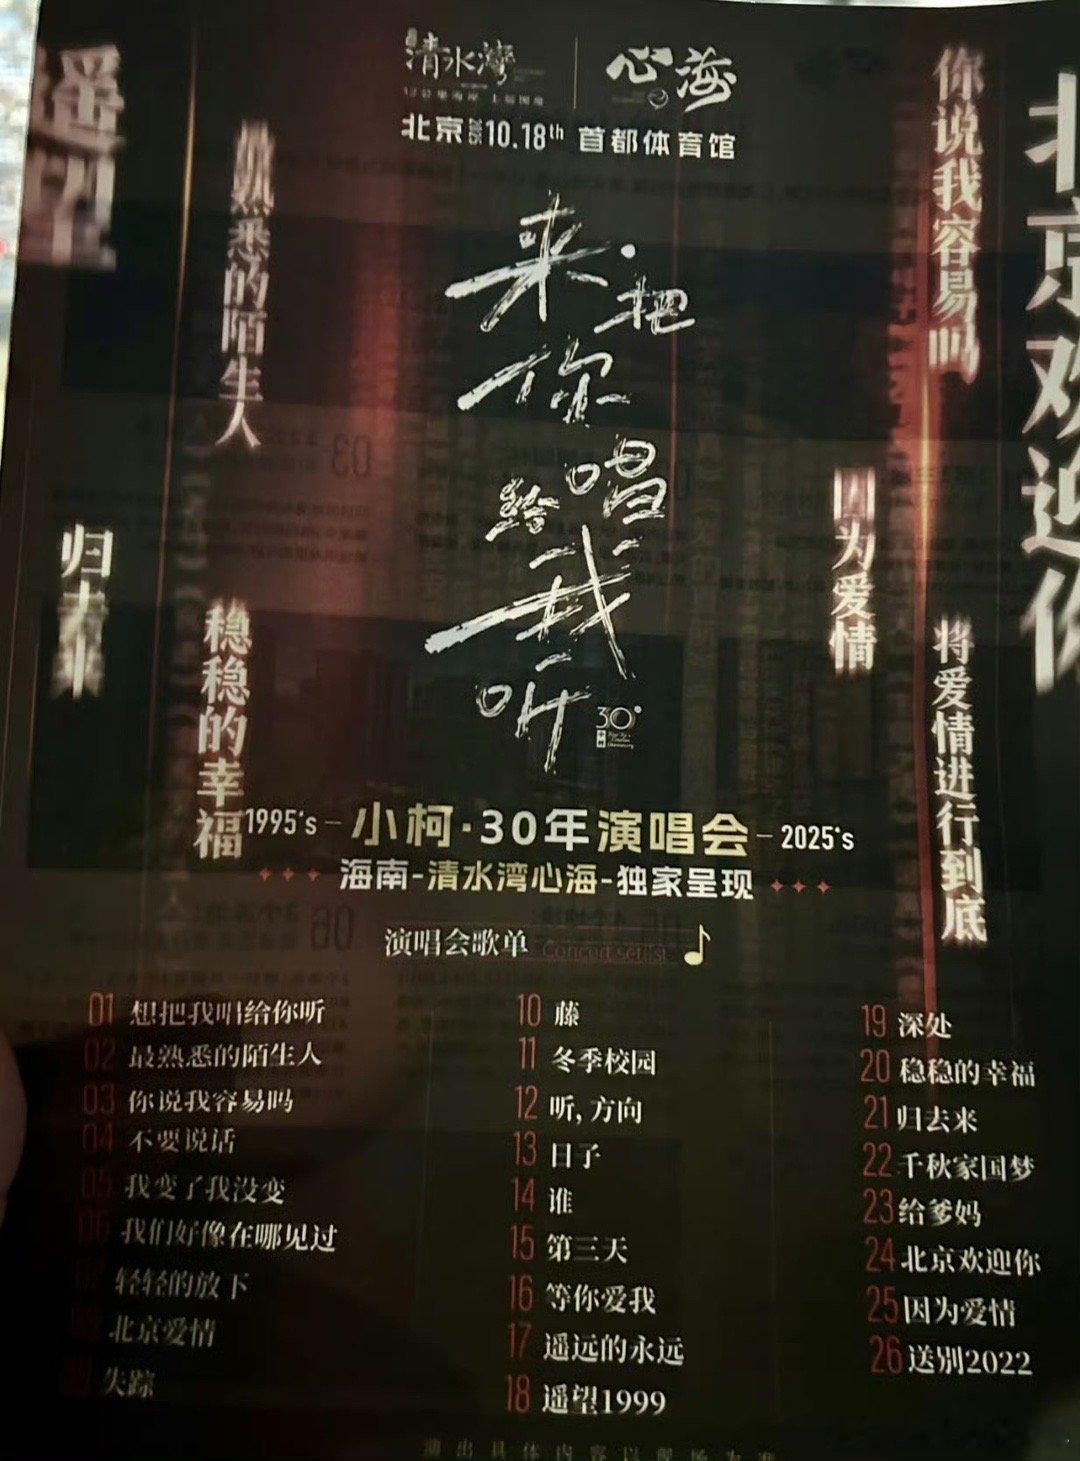 清水灣
心海
北京2025 10.18th 首都体育馆
来·把
你
唱
给
我
听
30°
遥望
最熟悉的陌生人
归去来
稳稳的幸福
你说我容易吗
因为爱情
将爱情进行到底
北京欢迎你
1995's－小柯·30年演唱会－2025's
海南-清水湾心海-独家呈现
演唱会歌单 Concert setlist
01 想把我唱给你听
02 最熟悉的陌生人
03 你说我容易吗
04 不要说话
05 我变了我没变
06 我们好像在哪见过
07 轻轻的放下
08 北京爱情
09 失踪
10 藤
11 冬季校园
12 听,方向
13 日子
14 谁
15 第三天
16 等你爱我
17 遥远的永远
18 遥望1999
19 深处
20 稳稳的幸福
21 归去来
22 千秋家国梦
23 给爹妈
24 北京欢迎你
25 因为爱情
26 送别2022
演出具体内容以现场为准